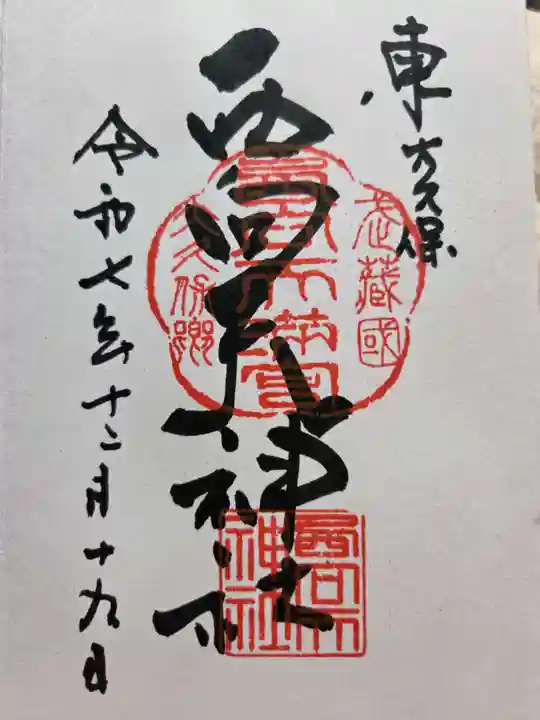 東大久保
西向天神社
令和七年十二月十九日
武藏國
西向天満宮
大久保郷
西向天
神社